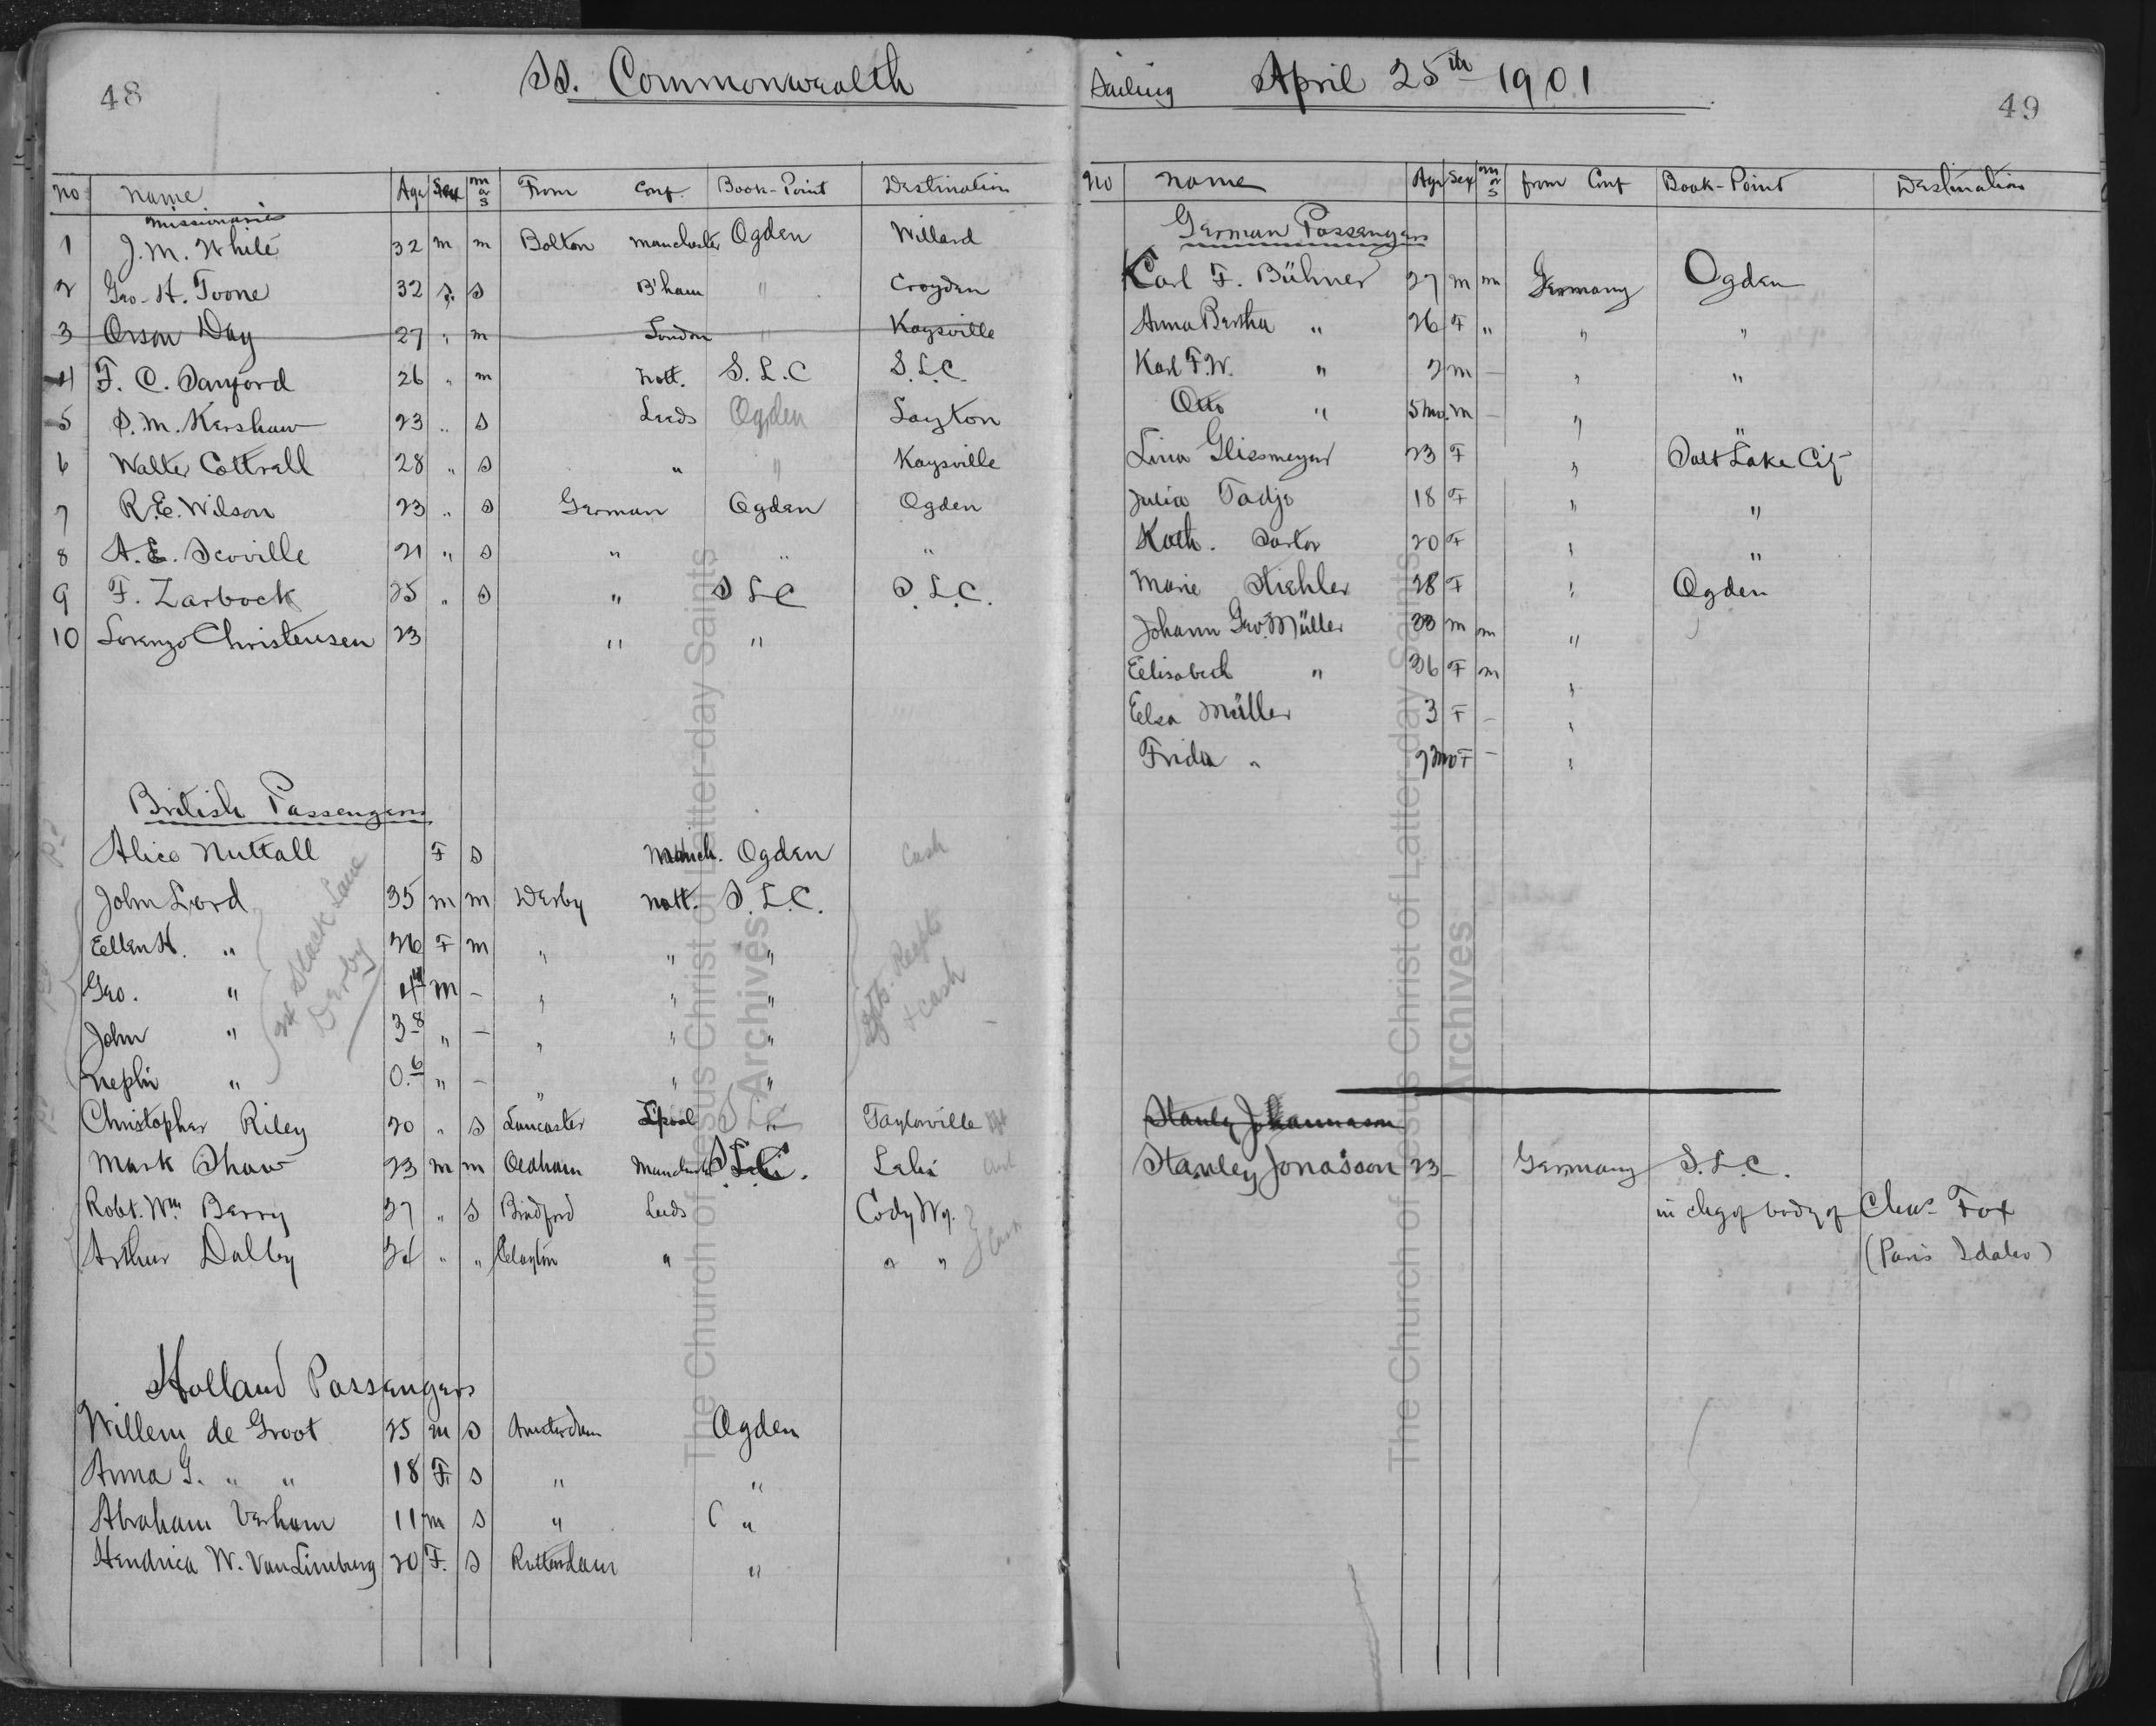 48
SS. Commonwealth
no name Age Sex m or s From Conf. Book-Point Destination
Missionaries
1 J. M. White 32 m m Bolton Manchester Ogden Willard
2 Geo. H. Toone 32 s B'ham " Croyden
3 Orson Day 27 " m London " Kaysville
4 F. C. Sanford 26 " m Nott. S. L. C S. L. C.
5 S. M. Kershaw 23 " s Leeds Ogden Layton
6 Walter Cottrell 28 " s " " Kaysville
7 R. E. Wilson 23 " s German Ogden Ogden
8 A. E. Scoville 21 " s " " "
9 F. Zarbock 25 " s " S L C S. L. C.
10 Lorenzo Christensen 23 " "
British Passengers
Alice Nuttall F s Manch. Ogden Cash
John Lord 35 m m Derby Nott. S. L. C.
Ellen H. " 26 F m " " "
Geo. " 4 m - " " "
John " 3-8 " - " " "
Nephi " 0.6 " - " " "
Slack Lane
Derby
& Cash
Christopher Riley 20 " s Lancaster L'pool S L C Taylorville
Mark Shaw 23 m m Oldham Manchester S. L. C. Lehi
Robt. Wm Berry 37 " s Bradford Leeds Cody Wy.
Arthur Dalby 24 " " Clayton " " "
Holland Passengers
Willem de Groot 25 m s Amsterdam Ogden
Anna G. " " 18 F. s " "
Abraham Verham 11 m s " "
Hendrica W. VanLimburg 20 F. s Rotterdam "
Sailing April 25th 1901
49
no name Age Sex m or s from Conf Book-Point Destination
German Passengers
Karl F. Bühner 27 m m Germany Ogden
Anna Bertha " 26 F " " "
Karl F. W. " 2 m - " "
Otto " 5 mo. m - " "
Lina Glissmeyer 23 F " Salt Lake City
Julia Tadje 18 F " "
Kath. Sartor 20 F " "
Marie Stiehler 28 F " Ogden
Johann Geo. Müller 33 m m "
Eelisabeth " 36 F m "
Eelsa Müller 3 F - "
Frida " 9 mo F - "
Stanley Johannason
Stanley Jonasson 23 - Germany S. L. C.
in chg of body of Chas Fox
(Paris Idaho)
The Church of Jesus Christ of Latter-day Saints
Archives
The Church of Jesus Christ of Latter-day Saints
Archives